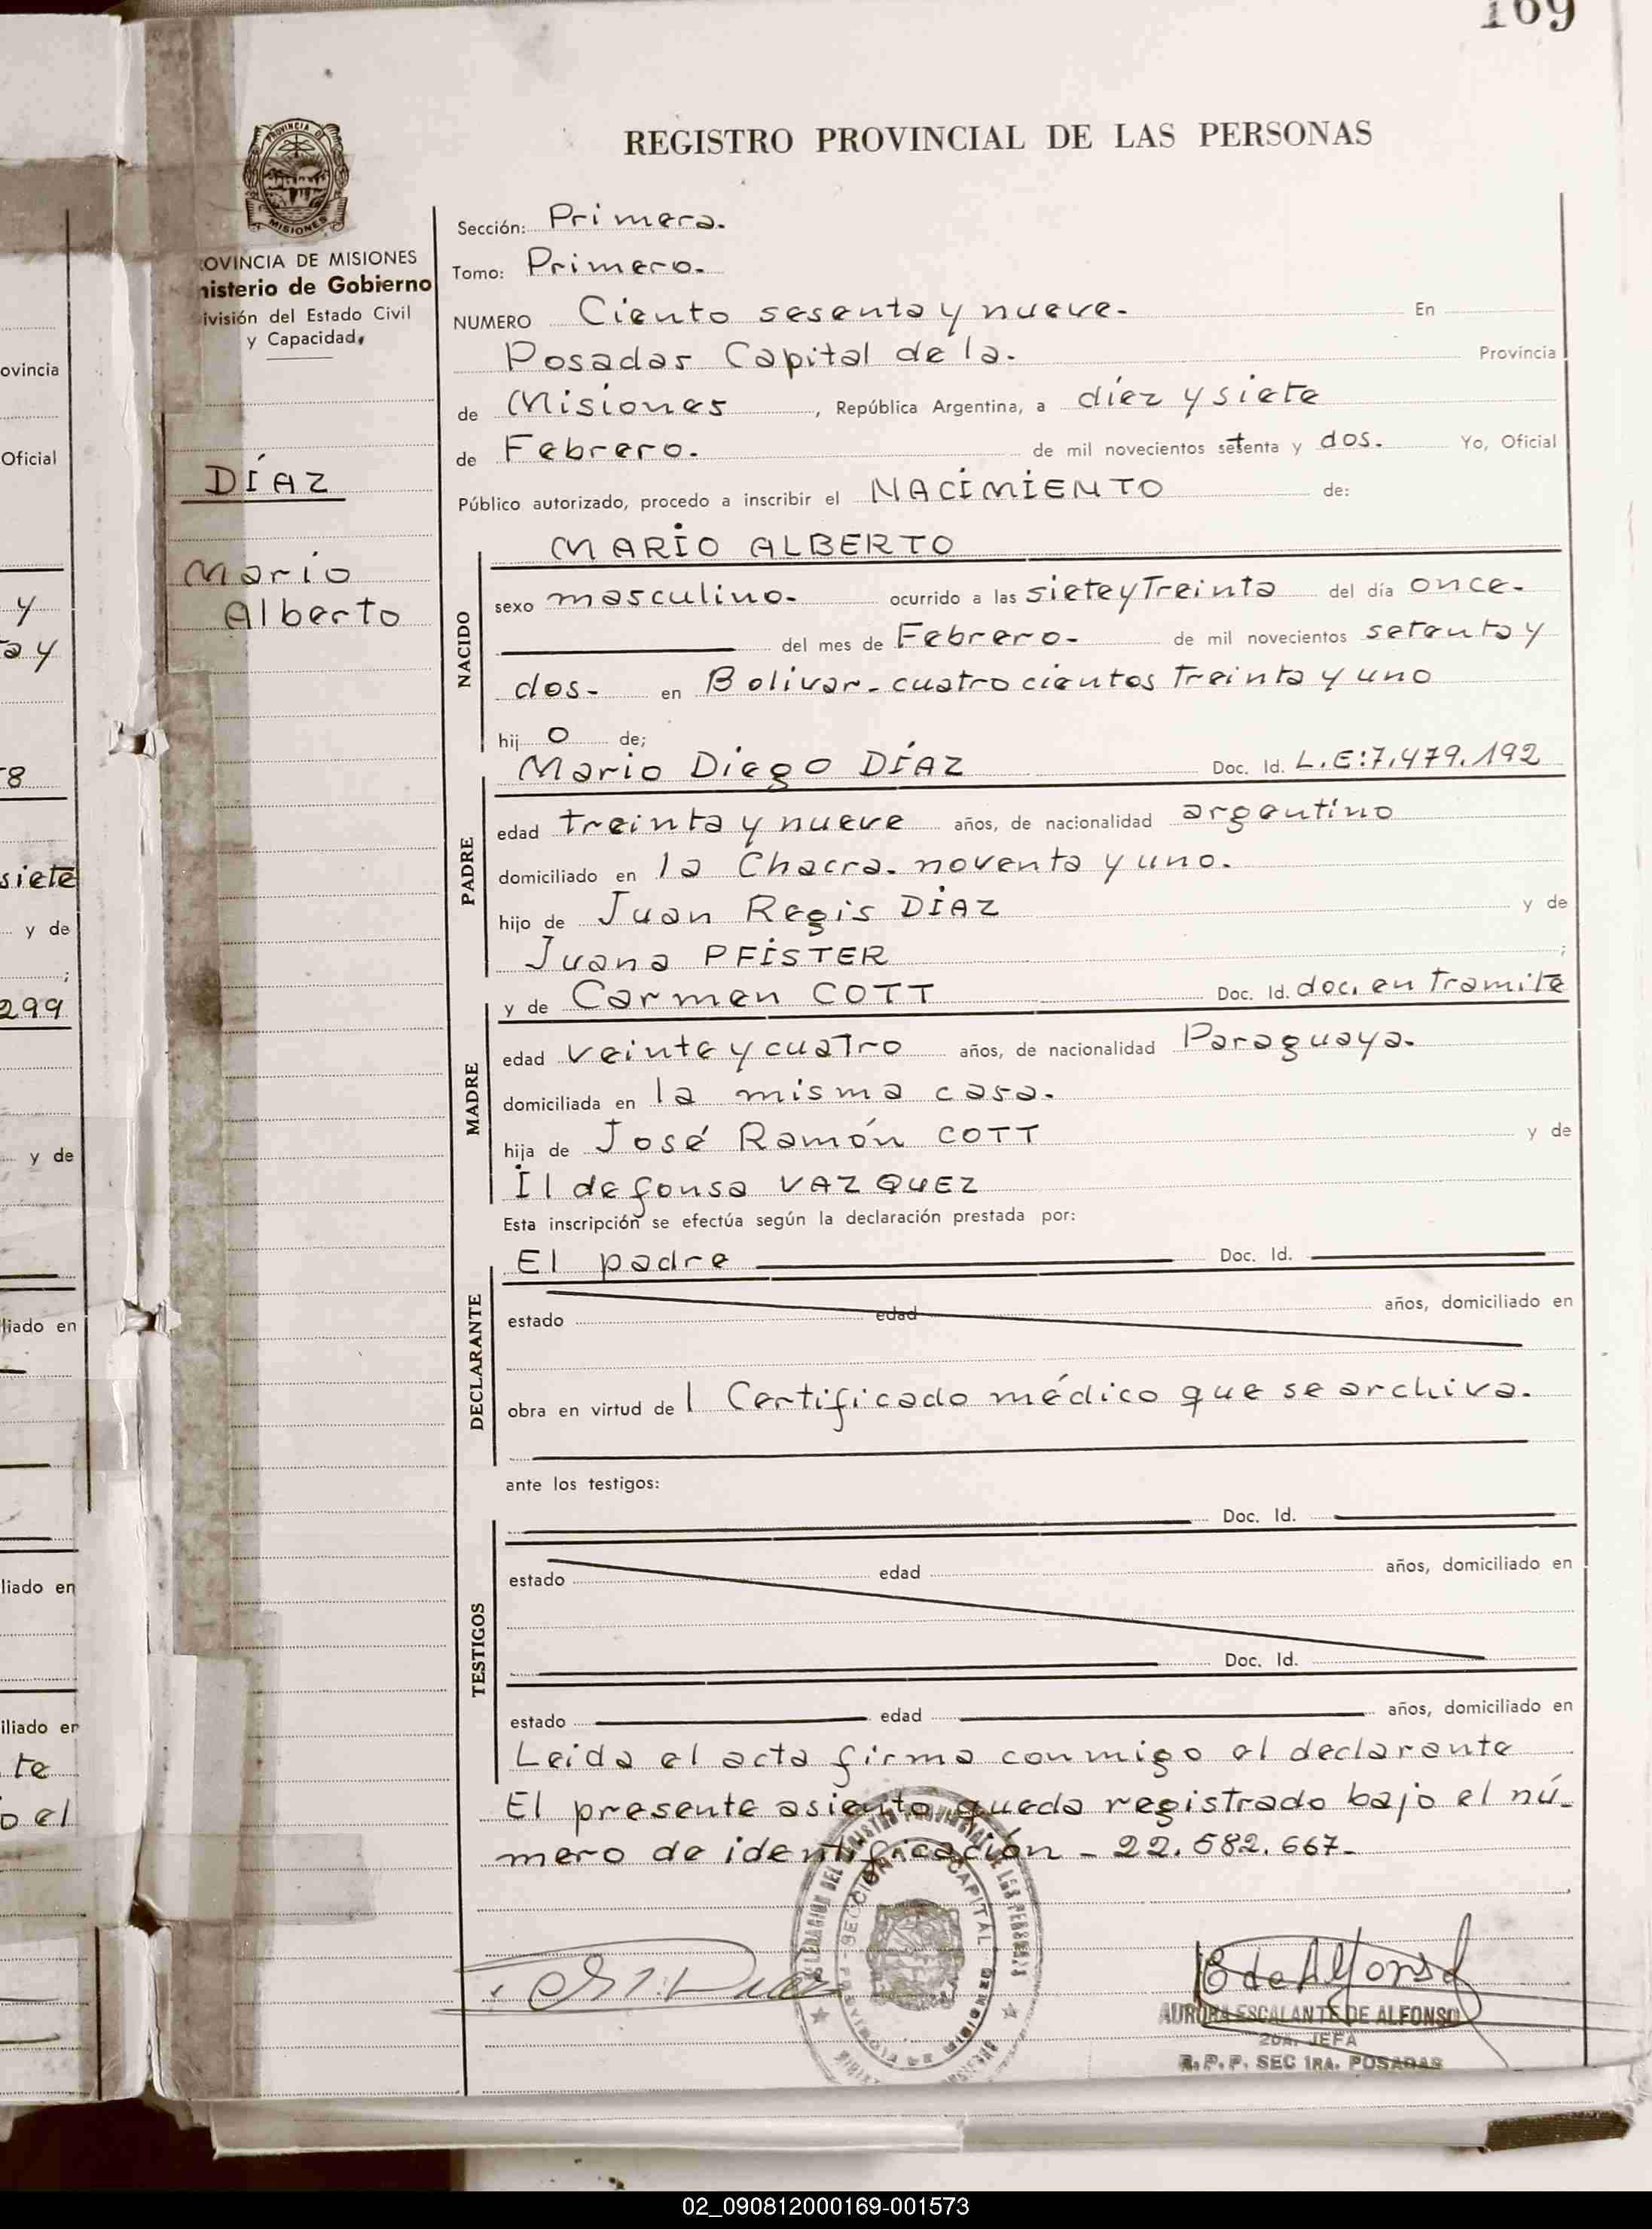 169
REGISTRO PROVINCIAL DE LAS PERSONAS
PROVINCIA DE
MISIONES
OVINCIA DE MISIONES
nisterio de Gobierno
ivisión del Estado Civil
y Capacidad,
DÍAZ
Mario
Alberto
Sección: Primera.
Tomo: Primero.
NUMERO Ciento sesenta y nueve. En
Posadas Capital de la. Provincia
de Misiones , República Argentina, a diez y siete
de Febrero. de mil novecientos setenta y dos. Yo, Oficial
Público autorizado, procedo a inscribir el NACIMIENTO de:
NACIDO
MARIO ALBERTO
sexo masculino. ocurrido a las siete y Treinta del día once.
del mes de Febrero. de mil novecientos setenta y
dos. en Bolivar. cuatrocientos Treinta y uno
hij o de;
PADRE
Mario Diego DÍAZ Doc. Id. L.E:7.479.192
edad treinta y nueve años, de nacionalidad argentino
domiciliado en la Chacra. noventa y uno.
hijo de Juan Regis DIAZ y de
Juana PFISTER ;
MADRE
y de Carmen COTT Doc. Id. doc. en Tramite
edad veinte y cuatro años, de nacionalidad Paraguaya.
domiciliada en la misma casa.
hija de José Ramón COTT y de
Ildefonsa VAZQUEZ
Esta inscripción se efectúa según la declaración prestada por:
DECLARANTE
El padre Doc. Id.
estado edad años, domiciliado en
obra en virtud de l Certificado médico que se archiva.
ante los testigos:
TESTIGOS
Doc. Id.
estado edad años, domiciliado en
Doc. Id.
estado edad años, domiciliado en
Leida el acta firma conmigo el declarante
El presente asiento queda registrado bajo el nú-
mero de identificación - 22.582.667.
E de Alfonso
AURORA ESCALANTE DE ALFONSO
2DA. JEFA
R. P. P. SEC 1RA. POSADAS
ovincia
Oficial
y
ta y
8
siete
y de
;
299
y de
liado en
liado en
iliado en
te
o el
02_090812000169-001573